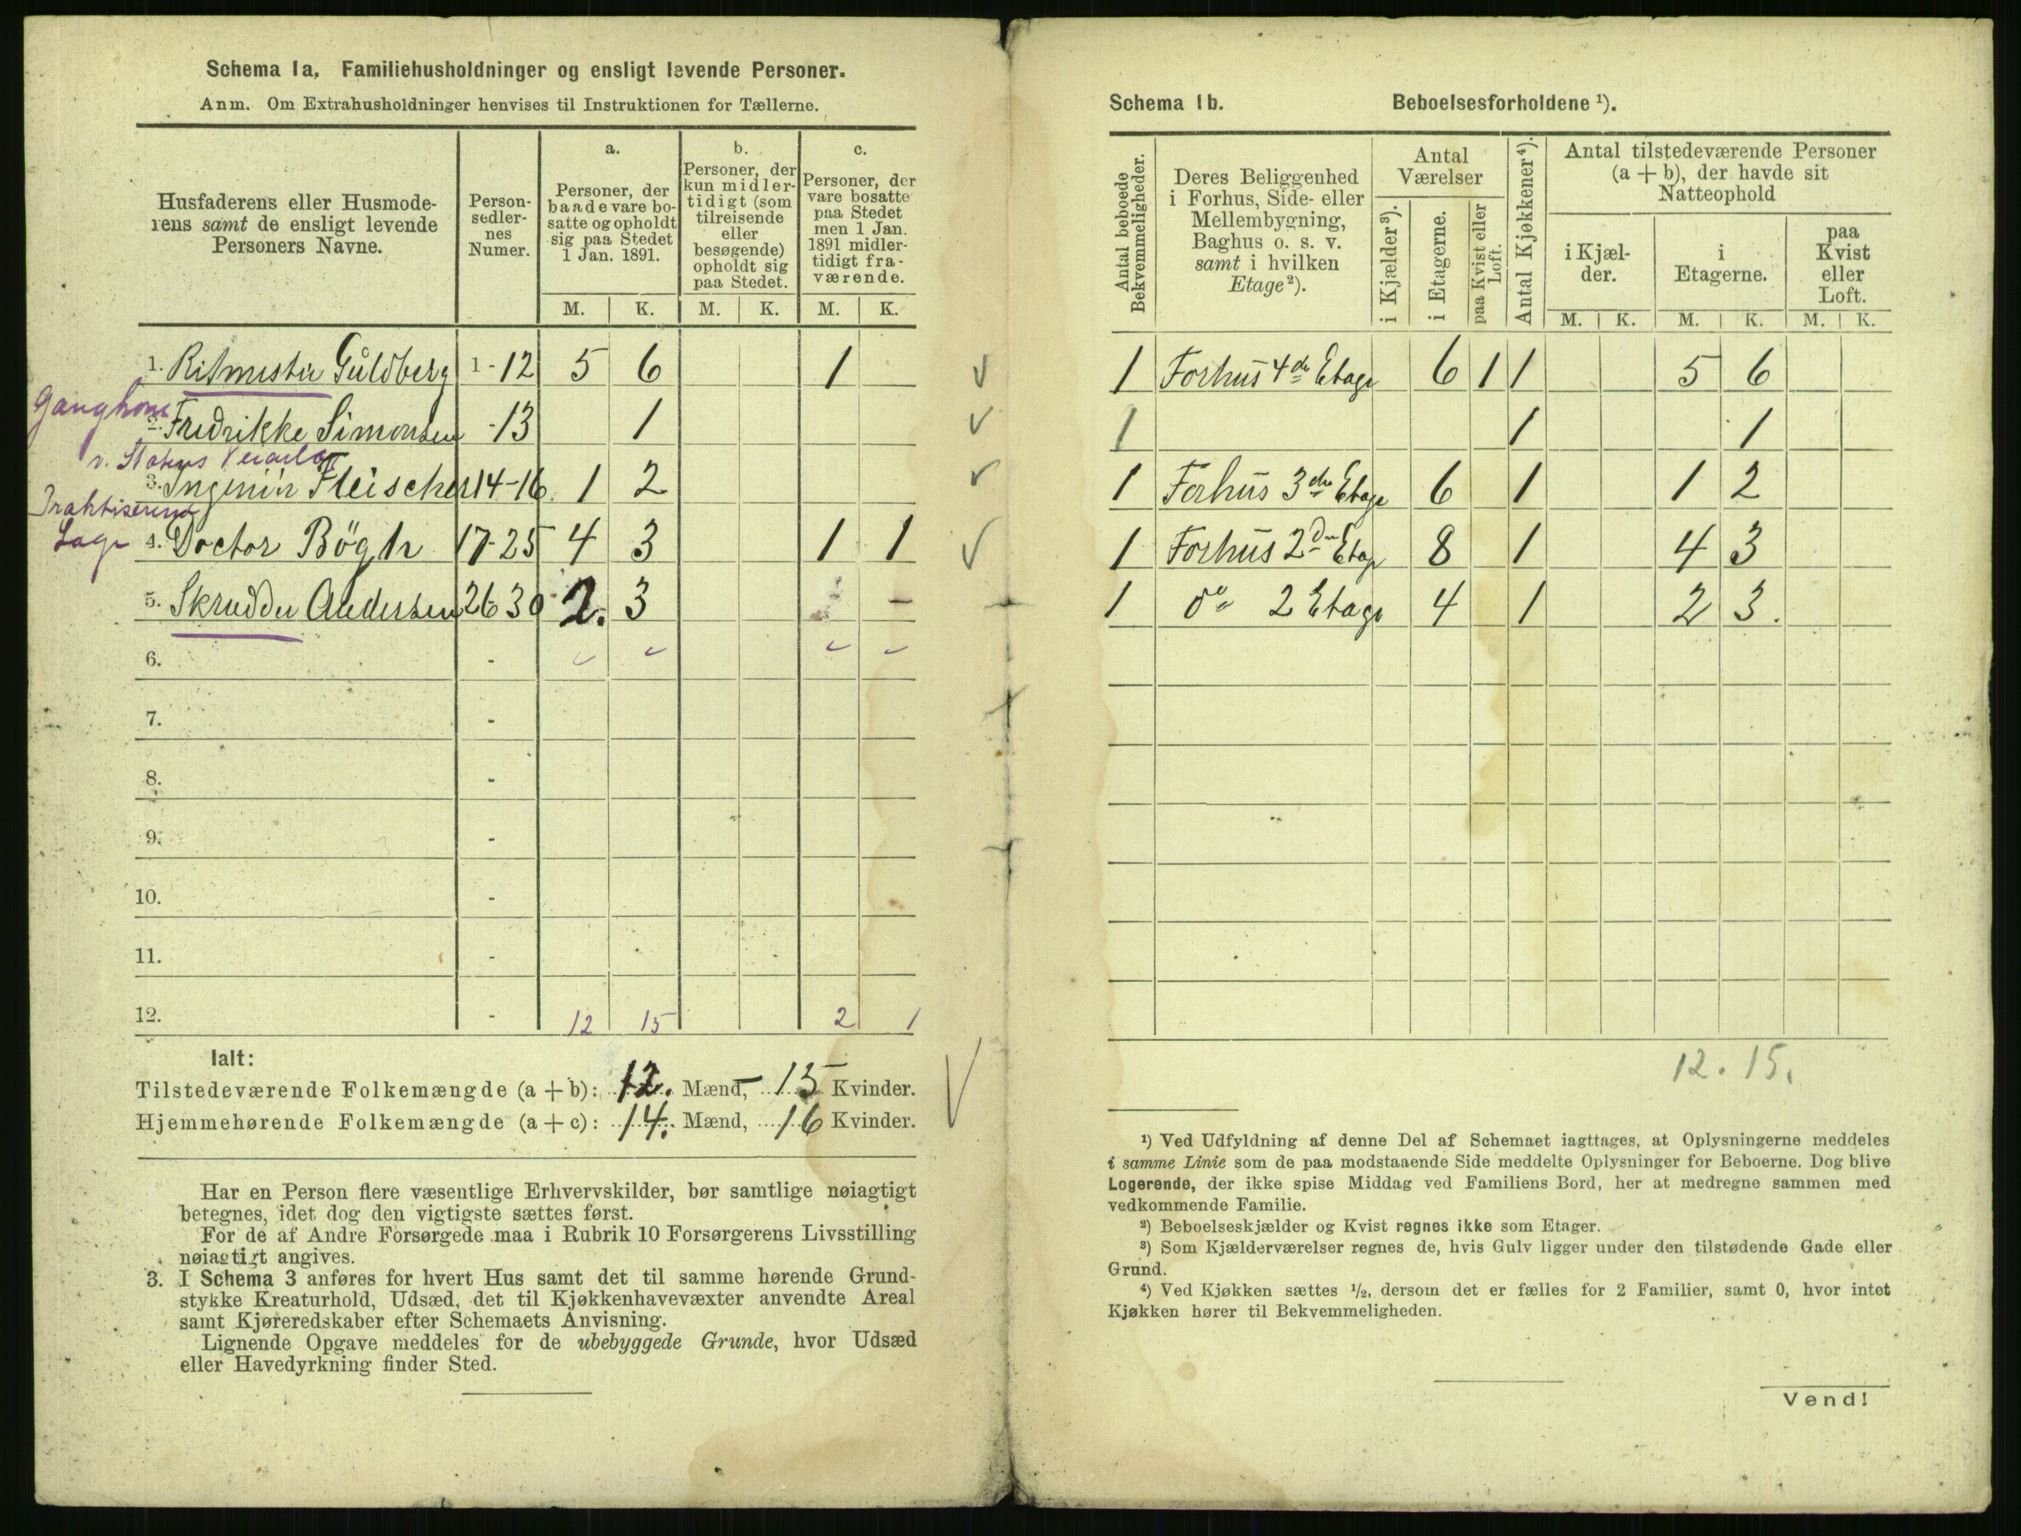 Schema 1a. Familiehusholdninger og ensligt levende Personer.
Anm. Om Extrahusholdninger henvises til Instruktionen for Tællerne.
Husfaderens eller Husmode-
rens samt de ensligt levende
Personers Navne.
Person-
sedler-
nes
Numer.
a.
Personer, der
baade vare bo-
satte og opholdt
sig paa Stedet
1 Jan. 1891.
b.
Personer, der
kun midler-
tidigt (som
tilreisende
eller
besøgende)
opholdt sig
paa Stedet.
c.
Personer, der
vare bosatte
paa Stedet
men 1 Jan.
1891 midler-
tidigt fra-
værende.
M. K. M. K. M. K.
1. Ritmester Güldberg 1-12 5 6 1
2. Fredrikke Simonsen -13 1
v. Statens
3. Ingeniör Fleischer 14-16 1 2
Praktiserende
Læge 4. Doctor Bögh 17-25 4 3 1 1
5. Skrædder Andersen 26 30 2. 3 –
6. -
7. -
8. -
9. -
10. -
11. -
12. - 12 15 2 1
Ialt:
Tilstedeværende Folkemængde (a + b): 12. Mænd, 15 Kvinder.
Hjemmehørende Folkemængde (a + c): 14. Mænd, 16 Kvinder.
Har en Person flere væsentlige Erhvervskilder, bør samtlige nøiagtigt
betegnes, idet dog den vigtigste sættes først.
For de af Andre Forsørgede maa i Rubrik 10 Forsørgerens Livsstilling
nøiagtigt angives.
3. I Schema 3 anføres for hvert Hus samt det til samme hørende Grund-
stykke Kreaturhold, Udsæd, det til Kjøkkenhavevæxter anvendte Areal
samt Kjøreredskaber efter Schemaets Anvisning.
Lignende Opgave meddeles for de ubebyggede Grunde, hvor Udsæd
eller Havedyrkning finder Sted.
Schema 1b. Beboelsesforholdene ¹).
Antal beboede
Bekvemmeligheder.
Deres Beliggenhed
i Forhus, Side- eller
Mellembygning,
Baghus o. s. v.
samt i hvilken
Etage ²).
Antal
Værelser
i Kjælder ³).
i Etagerne.
paa Kvist eller
Loft.
Antal Kjøkkener ⁴).
Antal tilstedeværende Personer
(a + b), der havde sit
Natteophold
i Kjæl-
der.
i
Etagerne.
paa
Kvist
eller
Loft.
M. K. M. K. M. K.
1 Forhus 4de Etage 6 1 1 5 6
1 1 1
1 Forhus 3die Etage 6 1 1 2
1 Forhus 2den Etag 8 1 4 3
1 do 2 Etage 4 1 2 3.
12. 15.
¹) Ved Udfyldning af denne Del af Schemaet iagttages, at Oplysningerne meddeles
i samme Linie som de paa modstaaende Side meddelte Oplysninger for Beboerne. Dog blive
Logerende, der ikke spise Middag ved Familiens Bord, her at medregne sammen med
vedkommende Familie.
²) Beboelseskjælder og Kvist regnes ikke som Etager.
³) Som Kjælderværelser regnes de, hvis Gulv ligger under den tilstødende Gade eller
Grund.
⁴) Ved Kjøkken sættes ½, dersom det er fælles for 2 Familier, samt 0, hvor intet
Kjøkken hører til Bekvemmeligheden.
Vend!